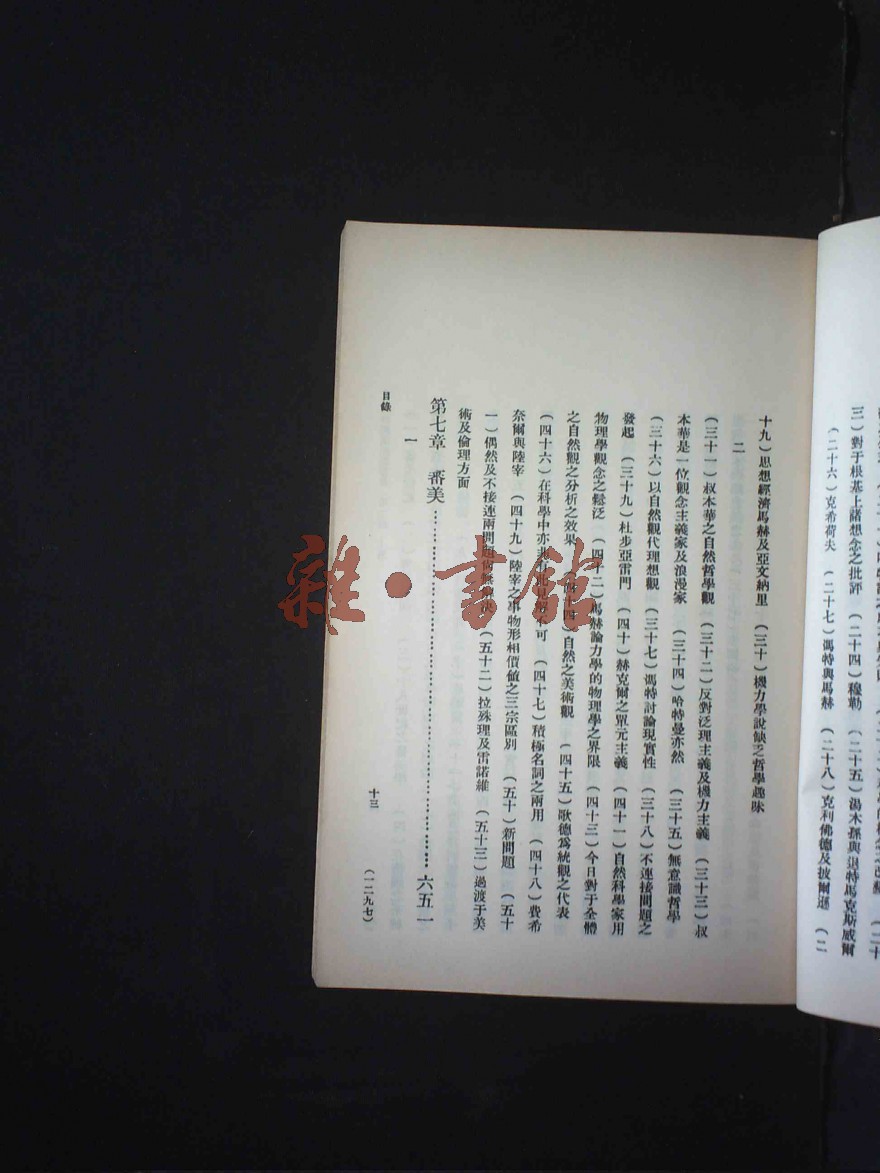 三）對于根基上諸想念之批評　（二十四）穆勒　（二十五）湯木孫與退特馬克斯威爾
（二十六）克希荷夫　（二十七）馮特與馬赫　（二十八）克利佛德及披爾遜　（二
十九）思想經濟馬赫及亞文納里　（三十）機力學說缺乏哲學趣味
二
（三十一）叔本華之自然哲學觀　（三十二）反對泛理主義及機力主義　（三十三）叔
本華是一位觀念主義家及浪漫家　（三十四）哈特曼亦然　（三十五）無意識哲學
（三十六）以自然觀代理想觀　（三十七）馮特討論現實性　（三十八）不連接問題之
發起　（三十九）杜步亞雷門　（四十）赫克爾之單元主義　（四十一）自然科學家用
物理學觀念之鬆泛　（四十二）馬赫論力學的物理學之界限　（四十三）今日對于全體
之自然觀之分析之效果　（四十四）自然之美術觀　（四十五）歌德爲統觀之代表
（四十六）在科學中亦非有此見解不可　（四十七）積極名詞之兩用　（四十八）費希
奈爾與陸宰　（四十九）陸宰之事物形相價値之三宗區別　（五十）新問題　（五十
一）偶然及不接連兩問題尙無解決　（五十二）拉殊理及雷諾維　（五十三）過渡于美
術及倫理方面
第七章　審美……………………………六五一
一
目錄
十三
（一二九七）
雜·書館